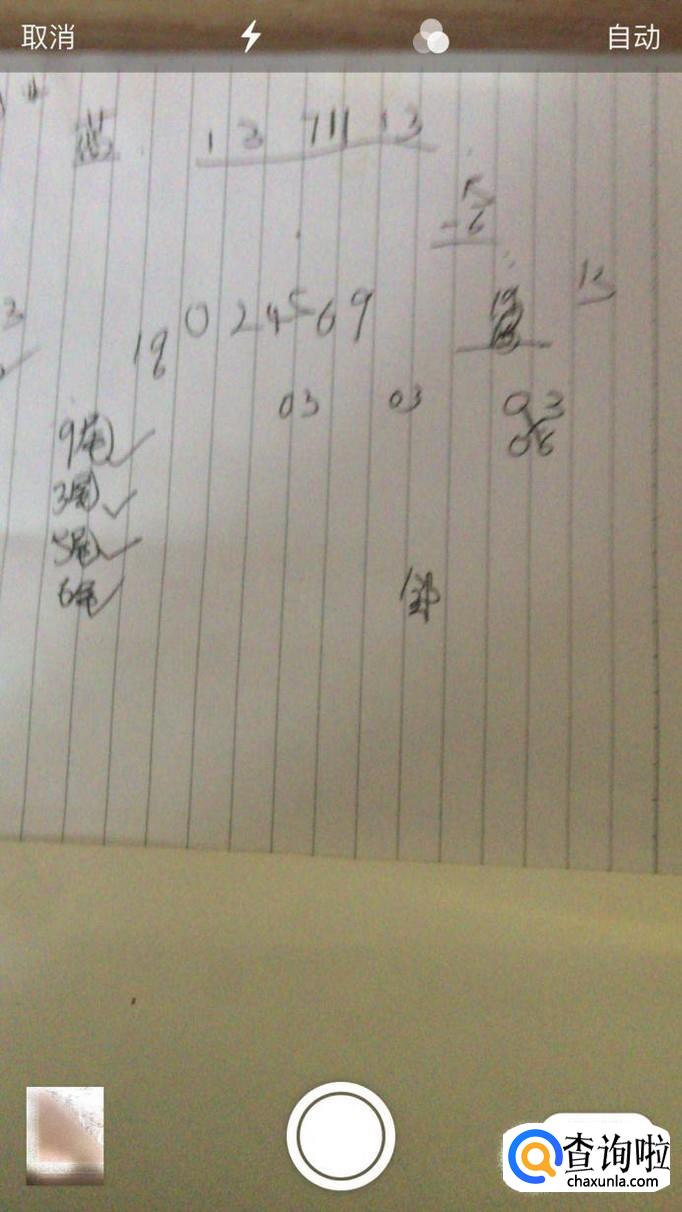 取消 自动
蓝 1 3 7 11 13
-6
3
18 0 2 4 5 6 9
03 03 03
06
9尾
3尾
5尾
6尾
查询啦
chaxunla.com